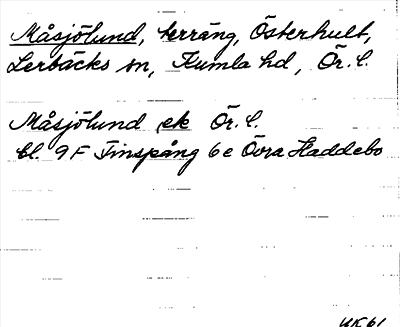 Måsjölund, terräng, Österhult,
Lerbäcks sn, Kumla hd, Ör. l.
Måsjölund ek Ör. l.
bl. 9F Finspång 6e Övra Haddebo
UK 61